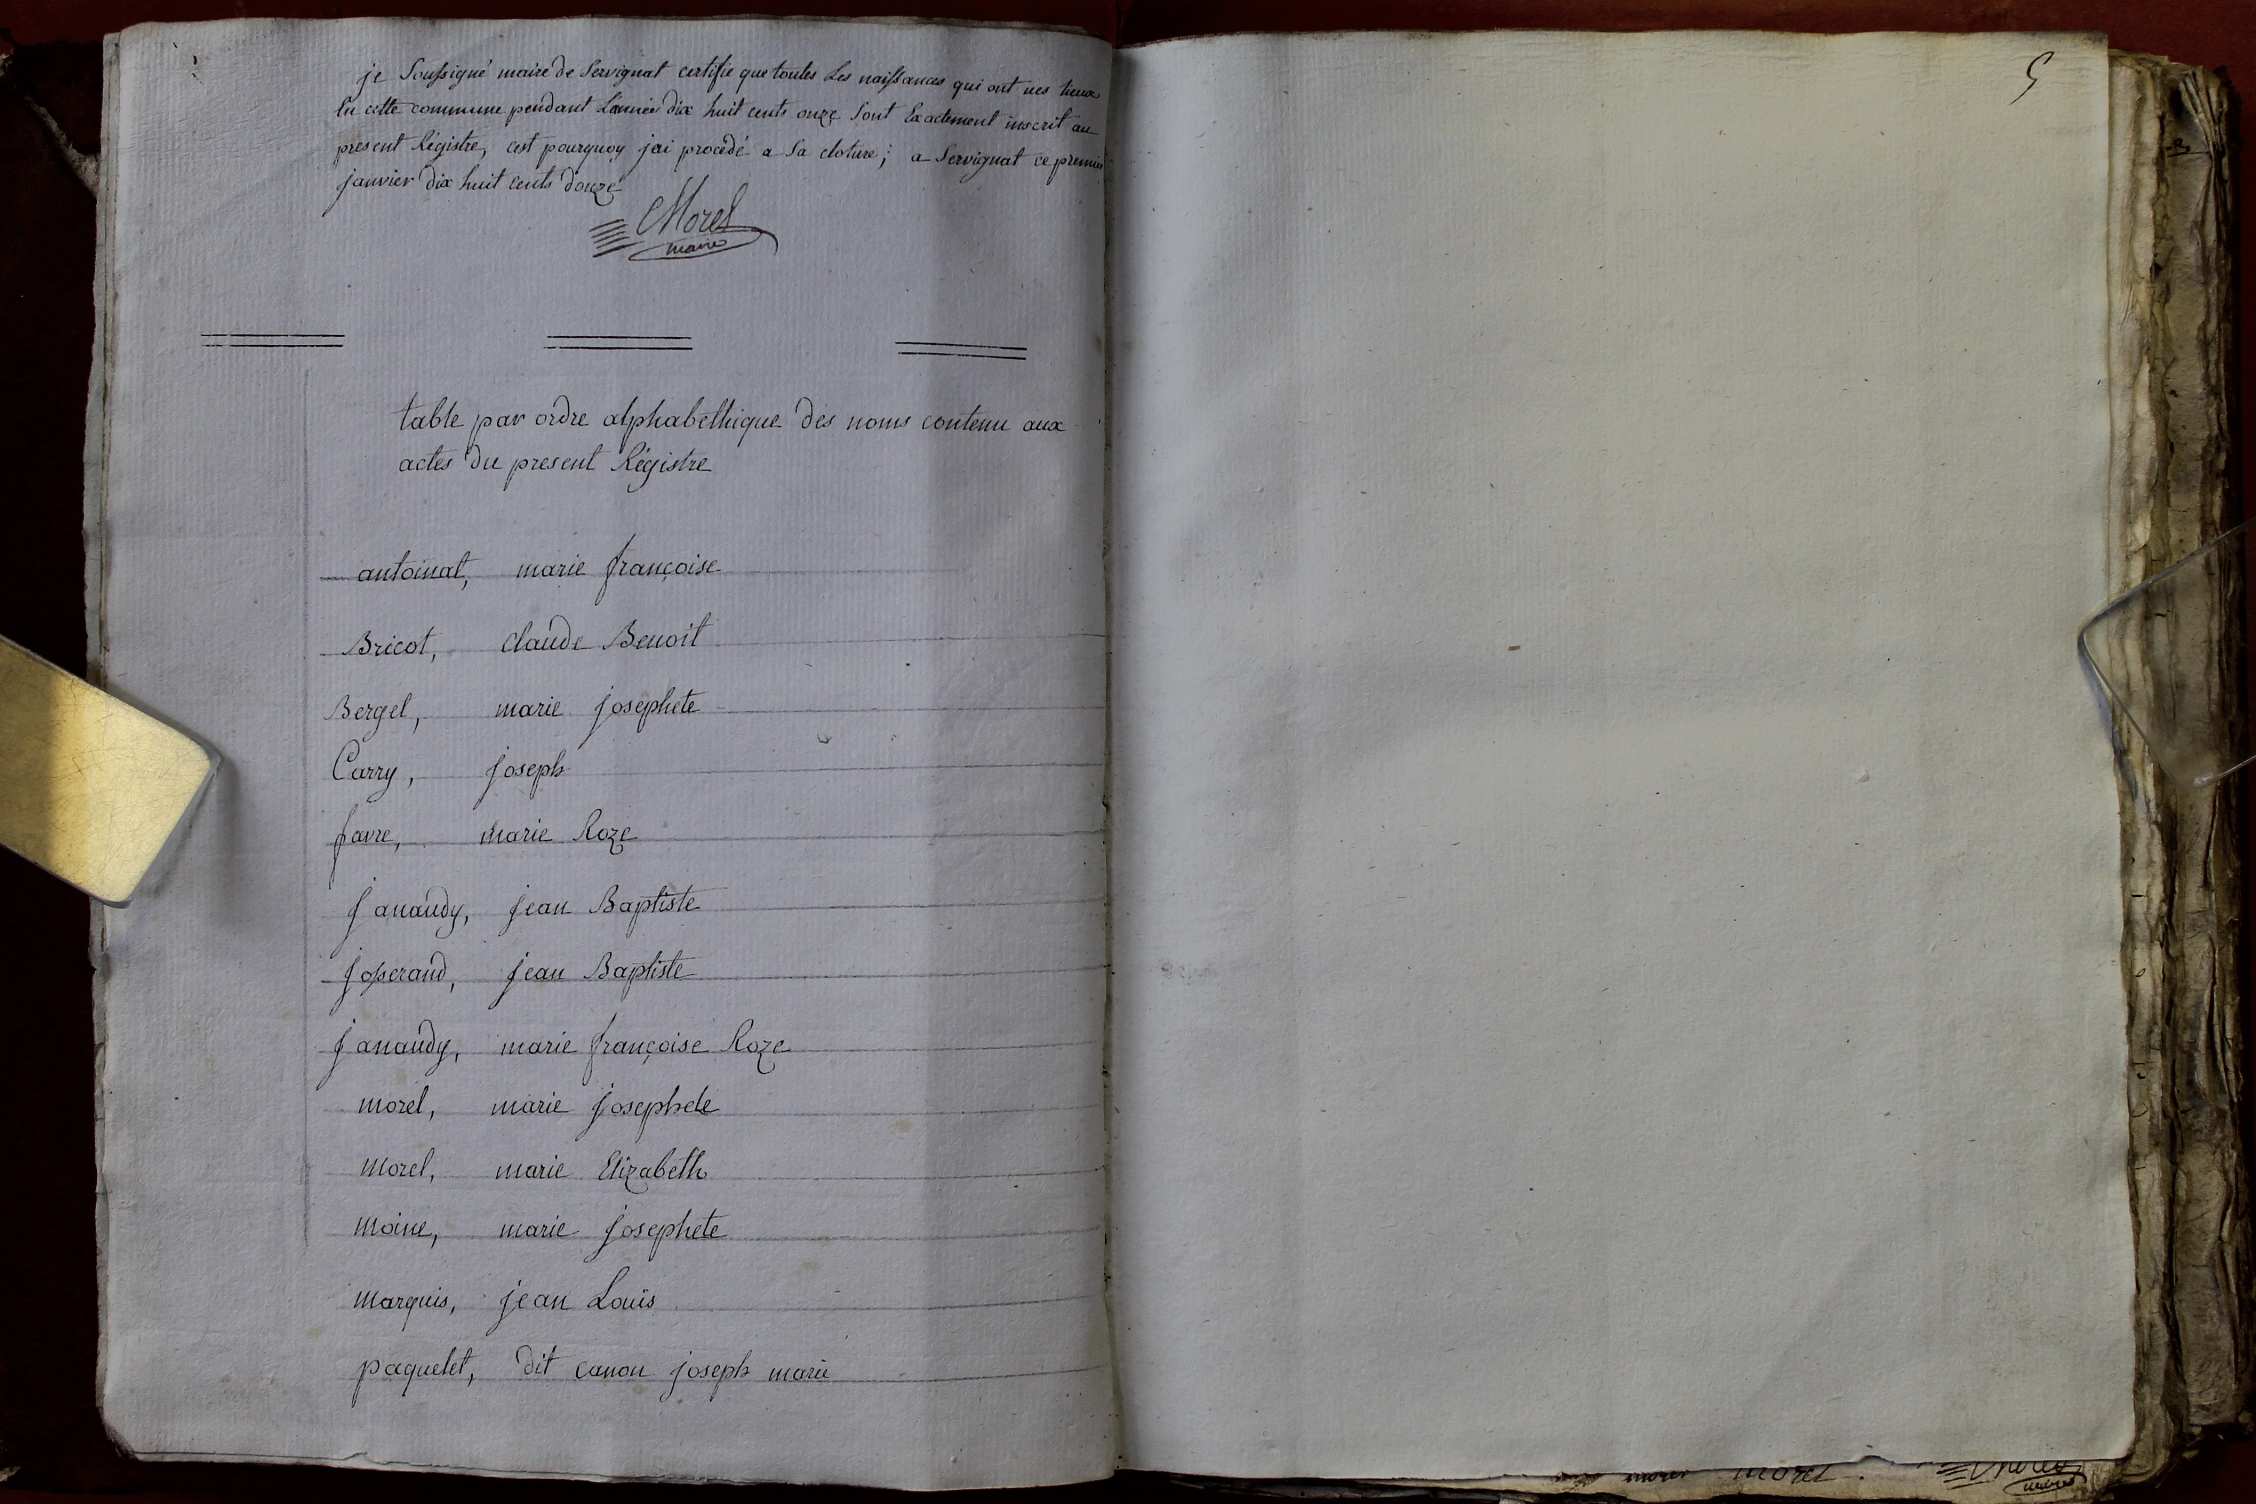 je Soussigné maire de Servignat certifie que toutes Les naissances qui ont ues lieux
En cette commune pendant L'année dix huit cents onze Sont Exactement inscrit au
present Régistre, cest pourquoy jai procédé a Sa cloture; a Servignat ce premier
janvier dix huit cents douze
Morel
maire
5
table par ordre alphabethique des noms contenu aux
actes du present Régistre
antoinat, marie françoise
Bricot, Claude Benoit
Bergel, marie josephete
Carry, joseph
favre, marie Roze
janaudy, jean Baptiste
josserand, jean Baptiste
janaudy, marie françoise Roze
morel, marie josephete
morel, marie Elizabeth
moine, marie josephete
marquis, jean Louis
paquelet, dit canon joseph marie
morel morel